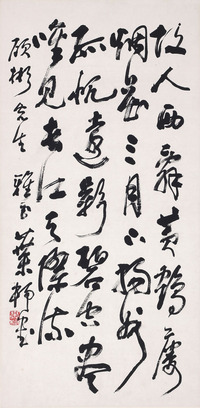 故人西辭黄鶴樓
烟花三月下揚州
孤帆遠影碧空盡
唯見長江天際流
顧彬先生 雅正 葉